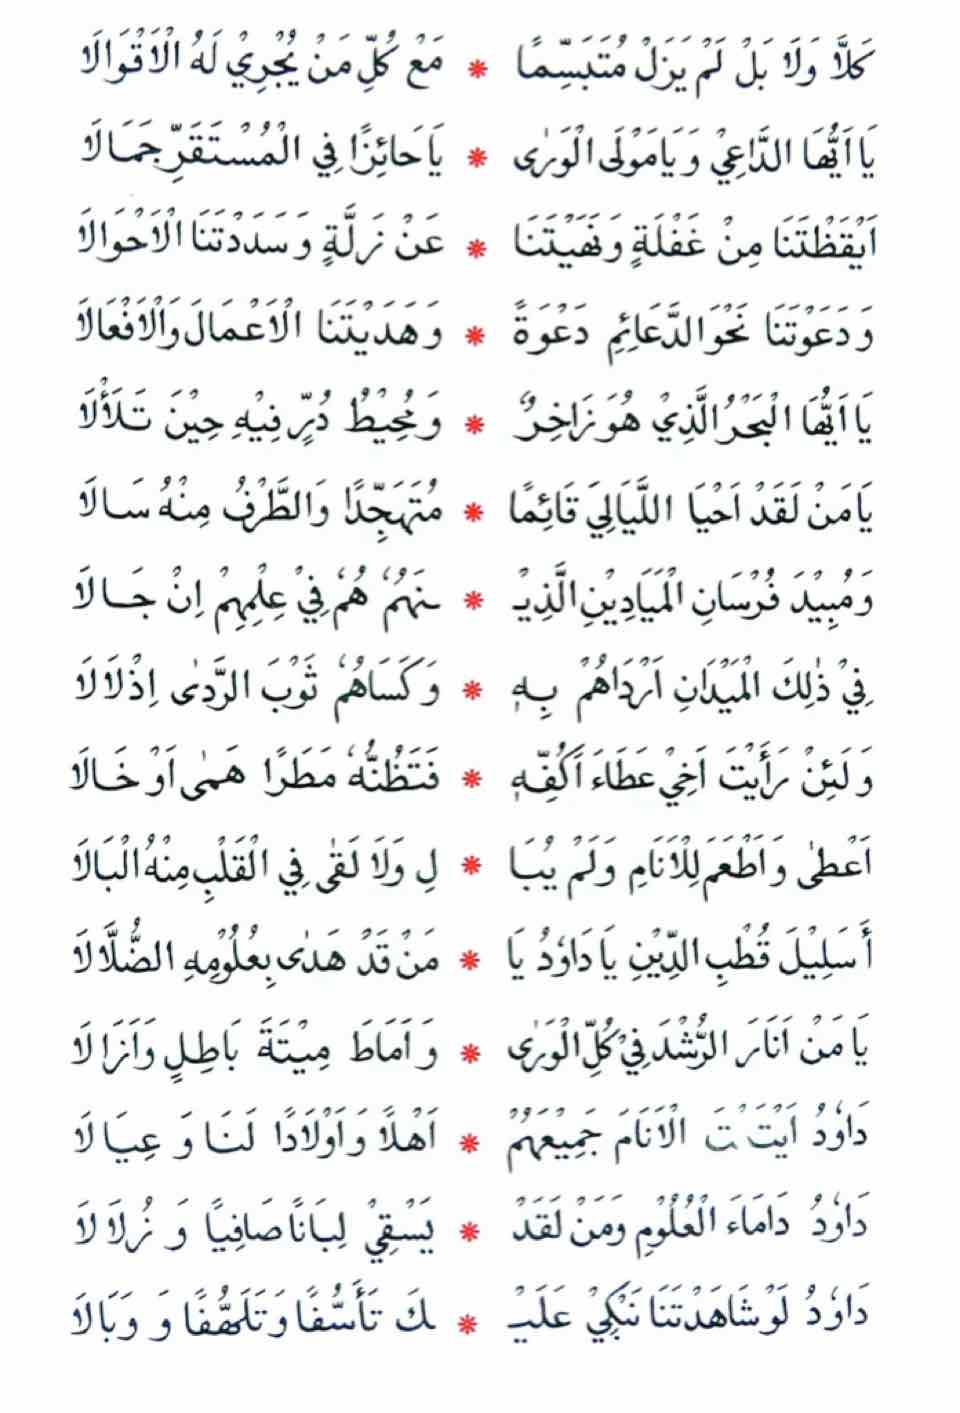 كَلَّا وَلَا بَلْ لَمْ يَزَلْ مُتَبَسِّمًا * مَعْ كُلِّ مَنْ يُجْرِيْ لَهُ الْاَقْوَالَا
يَا اَيُّهَا الدَّاعِيْ وَيَا مَوْلَى الْوَرٰى * يَا حَائِزًا فِي الْمُسْتَقَرِّ جَمَالَا
اَيْقَظْتَنَا مِنْ غَفْلَةٍ وَنَهَيْتَنَا * عَنْ زَلَّةٍ وَسَدَدْتَنَا الْاَحْوَالَا
وَدَعَوْتَنَا نَحْوَ الدَّعَائِمِ دَعْوَةً * وَهَدَيْتَنَا الْاَعْمَالَ وَالْاَفْعَالَا
يَا اَيُّهَا الْبَحْرُ الَّذِيْ هُوَ زَاخِرٌ * وَمُحِيْطُ دُرٍّ فِيْهِ حِيْنَ تَلَأْلَا
يَا مَنْ لَقَدْ اَحْيَا اللَّيَالِيَ قَائِمًا * مُتَهَجِّدًا وَالطَّرْفُ مِنْهُ سَالَا
وَمُبِيْدَ فُرْسَانِ الْمَيَادِيْنِ الَّذِيْـ * ـنَهُمْ هُمْ فِيْ عِلْمِهِمْ اِنْ جَالَا
فِيْ ذٰلِكَ الْمَيْدَانِ اَرْدَاهُمْ بِهِ * وَكَسَاهُمْ ثَوْبَ الرَّدٰى اِذْلَالَا
وَلَئِنْ رَأَيْتَ اَخِيْ عَطَاءَ اَكُفِّهِ * فَتَظُنُّهُ مَطَرًا هَمٰى اَوْ خَالَا
اَعْطٰى وَاَطْعَمَ لِلْاَنَامِ وَلَمْ يُبَا * لِ وَلَا لَقٰى فِي الْقَلْبِ مِنْهُ الْبَالَا
أَسَلِيْلَ قُطْبِ الدِّيْنِ يَا دَاوُدُ يَا * مَنْ قَدْ هَدٰى بِعُلُوْمِهِ الضُّلَّالَا
يَا مَنْ اَنَارَ الرُّشْدَ فِيْ كُلِّ الْوَرٰى * وَاَمَاطَ مِيْتَةَ بَاطِلٍ وَاَزَالَا
دَاوُدُ اَيْتَمْتَ الْاَنَامَ جَمِيْعَهُمْ * اَهْلًا وَاَوْلَادًا لَنَا وَعِيَالَا
دَاوُدُ دَامَاءَ الْعُلُوْمِ وَمَنْ لَقَدْ * يَسْقِيْ لِبَانًا صَافِيًا وَزُلَالَا
دَاوُدُ لَوْ شَاهَدْتَنَا نَبْكِيْ عَلَيْـ * ـكَ تَأَسُّفًا وَتَلَهُّفًا وَوَبَالَا